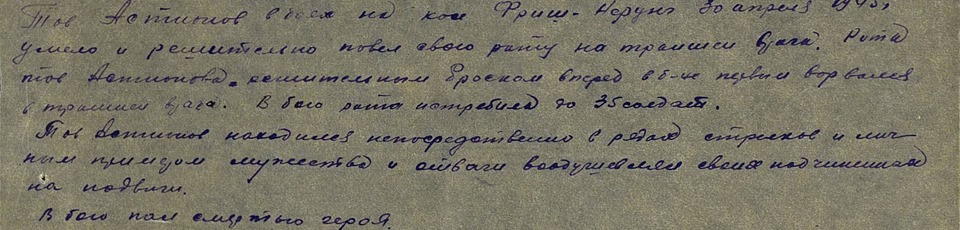 Тов Астионов в боях на кос Фриш-Нерунг 30 апреля 1945г
умело и решительно повел свою роту на траншеи врага. Рота
тов Астионова решительным броском вперед в б-не первая ворвалась
в траншеи врага. В бою рота истребила до 35 солдат.
Тов Астионов находился непосредственно в рядах стрелков и лич-
ным примером мужества и отваги воодушевлял своих подчиненных
на подвиги.
В бою пал смертью героя.